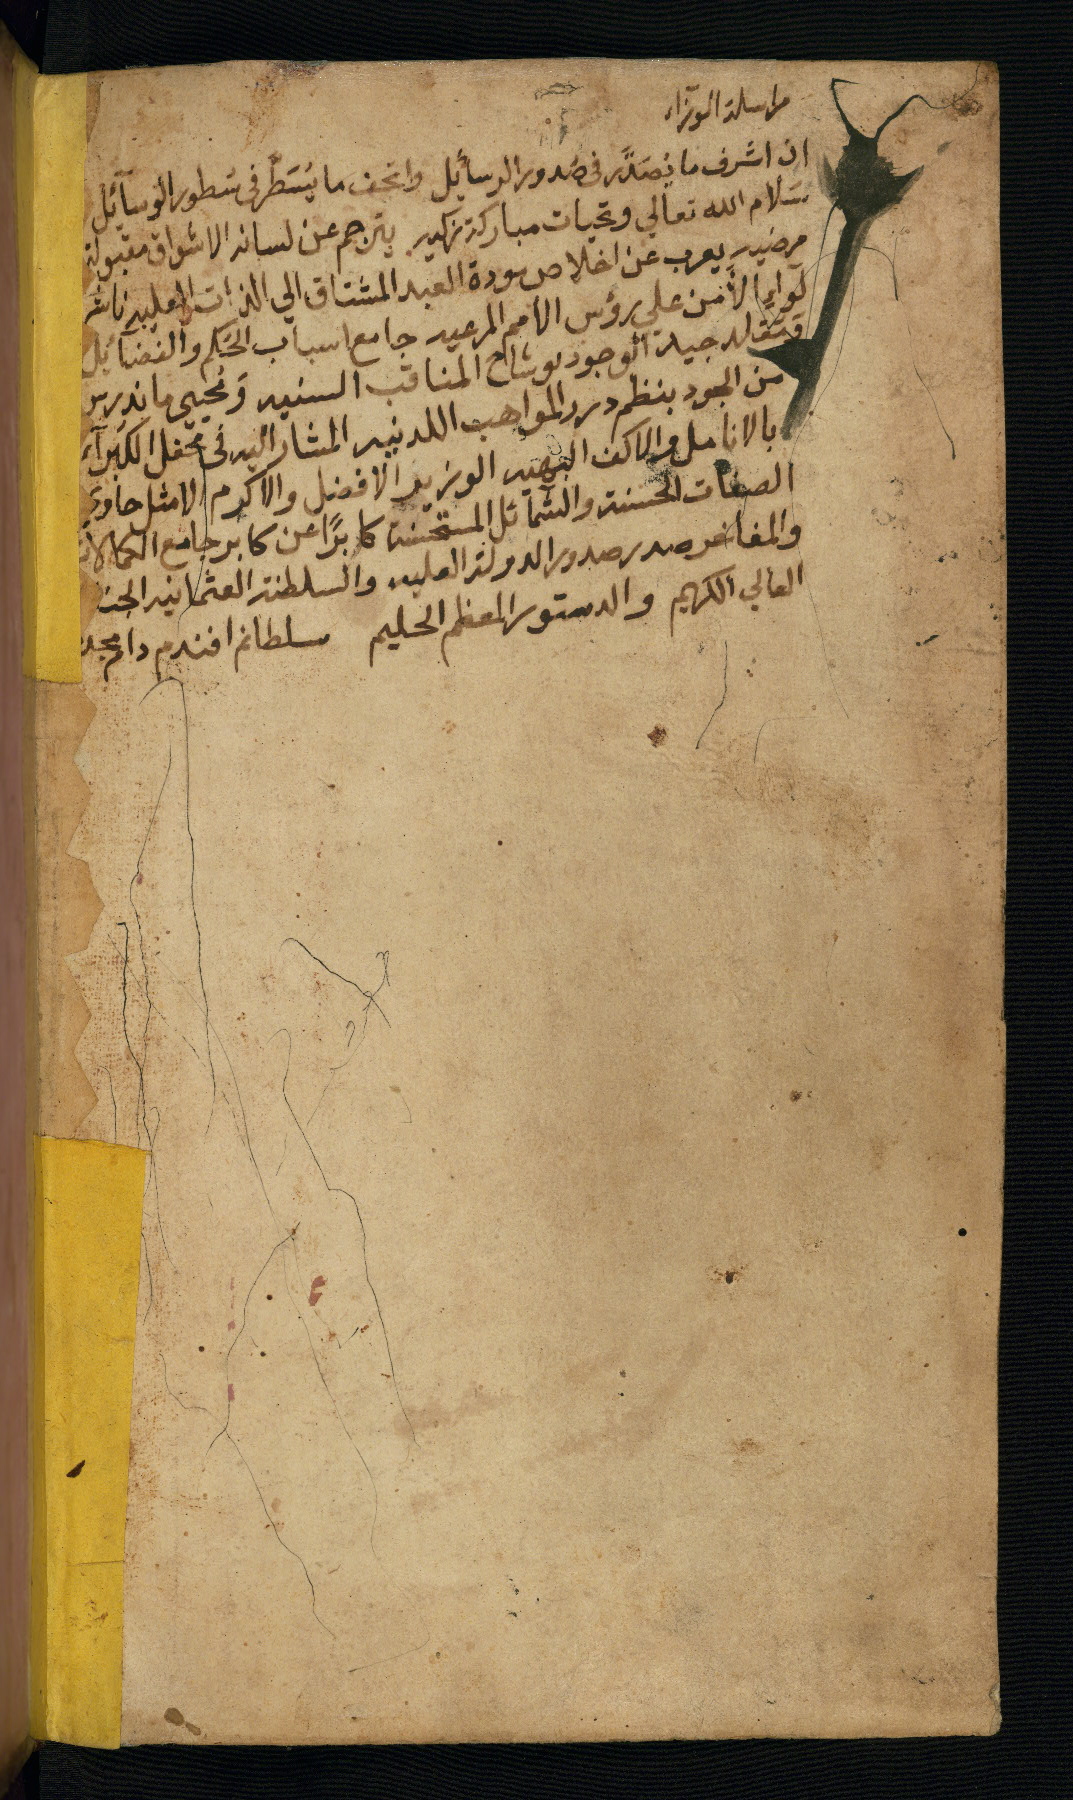 مراسلة الوزراء
ان اشرف ما يُصَدَّر في صُدور الرسائل واتحف ما يُسَطَّر في سُطور الوسآئل
سَلام الله تعالي وتحيات مباركة زكيه يترجم عن لسانه الاشواق مقبولة
مرضيه يعرب عن اخلاص مودة العبد المشتاق الي الذات العليه ناشر
لوآء الأمن علي رؤس الامم المرعيه جامع اسباب الحكم والفضائل
قتقلد جيد الوجود بوشاح المناقب السنيه ومُحيي ما اندرس
من الجود بنظم درر المواهب اللدنيه المشار اليه في محفل الكبرآء
بالانامل والاكف البهيه الوزير الافضل والاكرم الامثل حاوي
الصفات الحسنة والشمآئل المستحسنة كابرًا عن كابر جامع الكمالات
والمفاخر صدر صدور الدولة العليه والسلطنة العثمانيه الجناب
العالي الكريم والدستور المعظم الحليم سلطانم افندم دام مجده